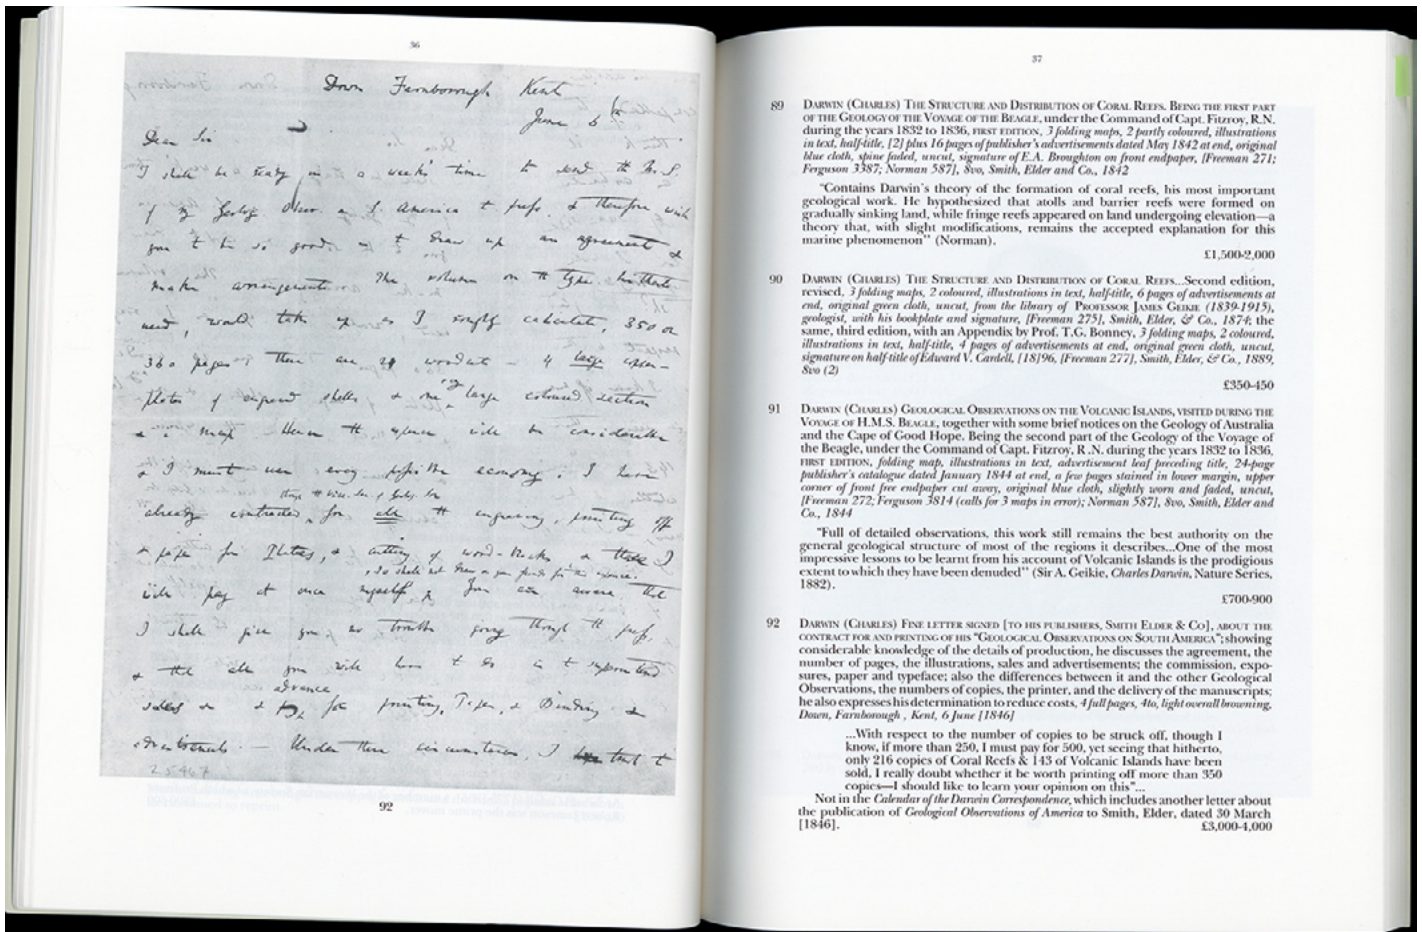 36
Down Farnborough Kent
June 6th
Dear Sir
I shall be ready in a week's time to send the M.S.
of my Geolog. Obser. on S. America to press & therefore wish
you to be so good as to draw up an agreement &
make arrangements. The volume on the type hitherto
used, would take up as I roughly calculate, 350 or
360 pages: there are 24 woodcuts — 4 large copper-
plates of engraved shells & one large coloured section
& a map. Hence the expence will be considerable
& I must use every possible economy. I have
already contracted, for all the engraving, printing off
& paper for Plates, & cutting of wood-blocks & these I
, so shall not draw on your funds for this expence.
will pay at once myself, You are aware that
I shall give you no trouble going through the press.
& that all you will have to do is to superintend
advance
sales & & pay for printing, Paper, & Binding &
advertisements. — Under these circumstances, I that t
25467
92
37
89 DARWIN (CHARLES) THE STRUCTURE AND DISTRIBUTION OF CORAL REEFS. BEING THE FIRST PART
OF THE GEOLOGY OF THE VOYAGE OF THE BEAGLE, under the Command of Capt. Fitzroy, R.N.
during the years 1832 to 1836, FIRST EDITION, 3 folding maps, 2 partly coloured, illustrations
in text, half-title, [2] plus 16 pages of publisher's advertisements dated May 1842 at end, original
blue cloth, spine faded, uncut, signature of E.A. Broughton on front endpaper, [Freeman 271;
Ferguson 3387; Norman 587], 8vo, Smith, Elder and Co., 1842
"Contains Darwin's theory of the formation of coral reefs, his most important
geological work. He hypothesized that atolls and barrier reefs were formed on
gradually sinking land, while fringe reefs appeared on land undergoing elevation—a
theory that, with slight modifications, remains the accepted explanation for this
marine phenomenon" (Norman).
£1,500-2,000
90 DARWIN (CHARLES) THE STRUCTURE AND DISTRIBUTION OF CORAL REEFS...Second edition,
revised, 3 folding maps, 2 coloured, illustrations in text, half-title, 6 pages of advertisements at
end, original green cloth, uncut, from the library of PROFESSOR JAMES GEIKIE (1839-1915),
geologist, with his bookplate and signature, [Freeman 275], Smith, Elder, & Co., 1874; the
same, third edition, with an Appendix by Prof. T.G. Bonney, 3 folding maps, 2 coloured,
illustrations in text, half-title, 4 pages of advertisements at end, original green cloth, uncut,
signature on half-title of Edward V. Cardell, [18]96, [Freeman 277], Smith, Elder, & Co., 1889,
8vo (2)
£350-450
91 DARWIN (CHARLES) GEOLOGICAL OBSERVATIONS ON THE VOLCANIC ISLANDS, VISITED DURING THE
VOYAGE OF H.M.S. BEAGLE, together with some brief notices on the Geology of Australia
and the Cape of Good Hope. Being the second part of the Geology of the Voyage of
the Beagle, under the Command of Capt. Fitzroy, R.N. during the years 1832 to 1836,
FIRST EDITION, folding map, illustrations in text, advertisement leaf preceding title, 24-page
publisher's catalogue dated January 1844 at end, a few pages stained in lower margin, upper
corner of front free endpaper cut away, original blue cloth, slightly worn and faded, uncut,
[Freeman 272; Ferguson 3814 (calls for 3 maps in error); Norman 587], 8vo, Smith, Elder and
Co., 1844
"Full of detailed observations, this work still remains the best authority on the
general geological structure of most of the regions it describes...One of the most
impressive lessons to be learnt from his account of Volcanic Islands is the prodigious
extent to which they have been denuded" (Sir A. Geikie, Charles Darwin, Nature Series,
1882).
£700-900
92 DARWIN (CHARLES) FINE LETTER SIGNED [TO HIS PUBLISHERS, SMITH ELDER & CO], ABOUT THE
CONTRACT FOR AND PRINTING OF HIS "GEOLOGICAL OBSERVATIONS ON SOUTH AMERICA"; showing
considerable knowledge of the details of production, he discusses the agreement, the
number of pages, the illustrations, sales and advertisements; the commission, expo-
sures, paper and typeface; also the differences between it and the other Geological
Observations, the numbers of copies, the printer, and the delivery of the manuscripts;
he also expresses his determination to reduce costs, 4 full pages, 4to, light overall browning,
Down, Farnborough , Kent, 6 June [1846]
...With respect to the number of copies to be struck off, though I
know, if more than 250, I must pay for 500, yet seeing that hitherto,
only 216 copies of Coral Reefs & 143 of Volcanic Islands have been
sold, I really doubt whether it be worth printing off more than 350
copies—I should like to learn your opinion on this"...
Not in the Calendar of the Darwin Correspondence, which includes another letter about
the publication of Geological Observations of America to Smith, Elder, dated 30 March
[1846].
£3,000-4,000